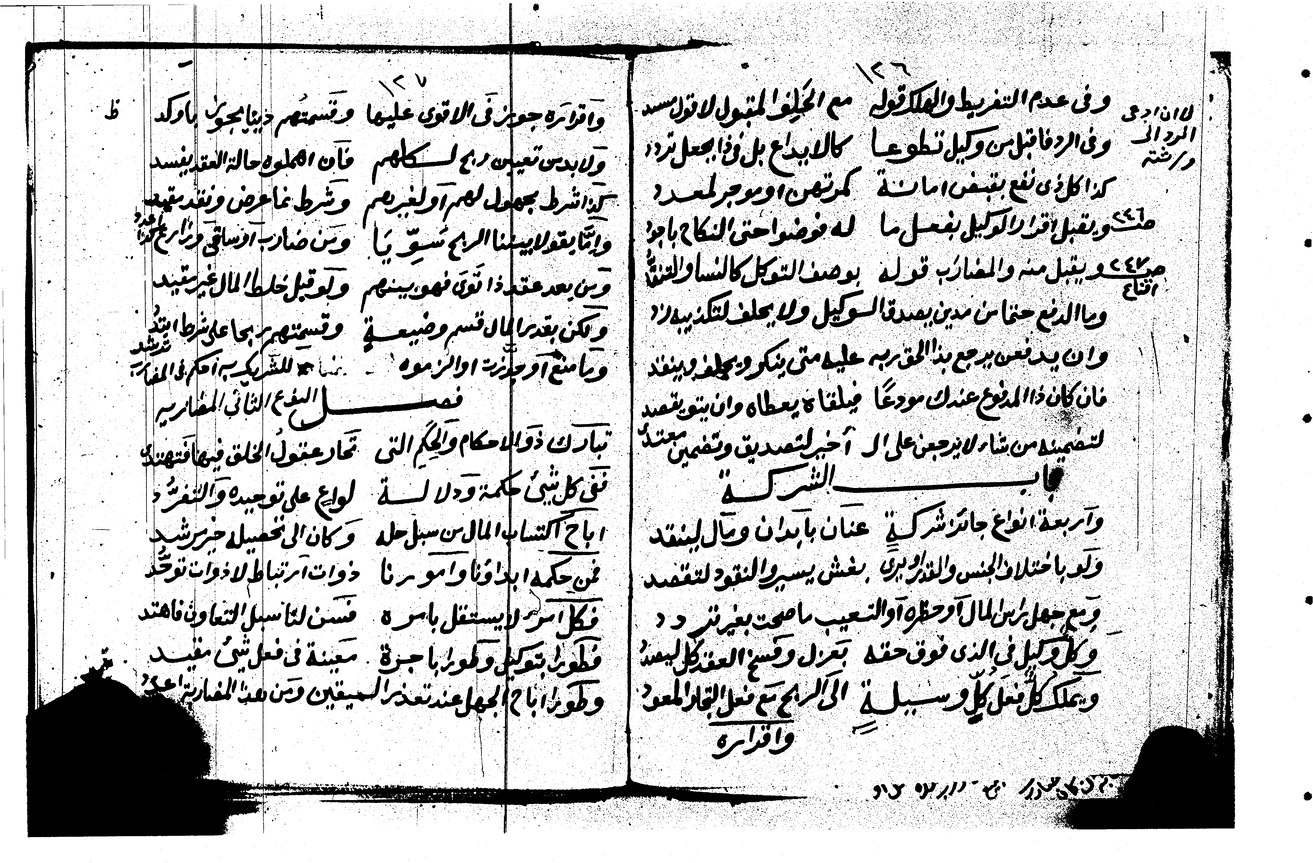 ١٢٦
وفى عدم التفريط والهلك قوله مع الحلف المقبول لا قول
لا ان ادعى
الرد الى
ورثته
وفى الرد فاقبل من وكيل تطوعا كالايداع بل فى ذا بجعل تردد
كذا كل ذى نفع بقبض امانة كمرتهن او موجر لمعدد
ويقبل اقرار الوكيل بفعل ما له فوضوا حتى النكاح باجود
ص ٢٤٦
ويقبل منه والمضارب قوله بوصف التوكل كالنسا والتنقد
ص ٢٤٧
اقناع
وما الدفع حتما من مدين يصدق الوكيل ولا يحلف لتكذيبه زد
وان يدفعن يرجع بذا الحق ربه عليه متى ينكر ويحلف وينقد
فان كان ذا المدفوع عندك مودعا فيلقاه يعطاه وان يتو يقصد
لتضمينه من شا ولا يرجعن على الـ أخير لتصديق وتضمين معتدى
باب الشركة
واربعة انواع جائز شركة عنان بابدان ومال لينقد
ولو باختلاف الجنس والقدر بغش يسير والنقود لتقصد
ومع جهل راس المال او حظره او التعيب ما صحت بغير تردد
وكل وكيل فى الذى فوق حقه بعزل وفسخ العقد كل ليبعد
ويملك كل فعل كل وسيلة الى الربح مع فعل التجار المعود
واقراره
١٢٧
واقراره جوز فى الاقوى عليها وقسمتهم دينا يجوز باوكد
ظ
ولا بد من تعيين ربح لكلهم فان اهملوه حالة العقد يفسد
كذا شرط مجهول لهم او لغيرهم وشرط نما عرض ونقد مقيد
واما يقولا بيننا الربح سويا ومن ضارب او ساقى وزارع كذا اعدد
ومن بعد عقد ذا توى فهو بينهم ولو قبل خلط المال غير مقيد
ولكن بقدر المال قسم وضيعة وقسمتهم ربحا على شرط ابتد
وما منع او جوزت او الزموه للشريك به احكم فى المضارب ترشد
فصل النوع الثانى المضاربه
تبارك ذو الاحكام والحكم التى تحار عقول الخلق فيها فتهتدى
ففى كل شئ حكمة ودلالة لواع على توحيده والتفرد
اباح اكتساب المال من سبل حله وكان الى تحصيله خير مرشد
فمن حكمه ابداؤنا وامورنا ذوات ارتباط لا ذوات توحد
فكل امرء لا يستقل بامره فسن لنا سبل التعاون فاهتد
فطورا بتوكيل وطورا باجرة معينة فى فعل شئ مقيد
وطورا اباح الجهل عند تعذر اليقين ومن هذا المضاربة اعدد